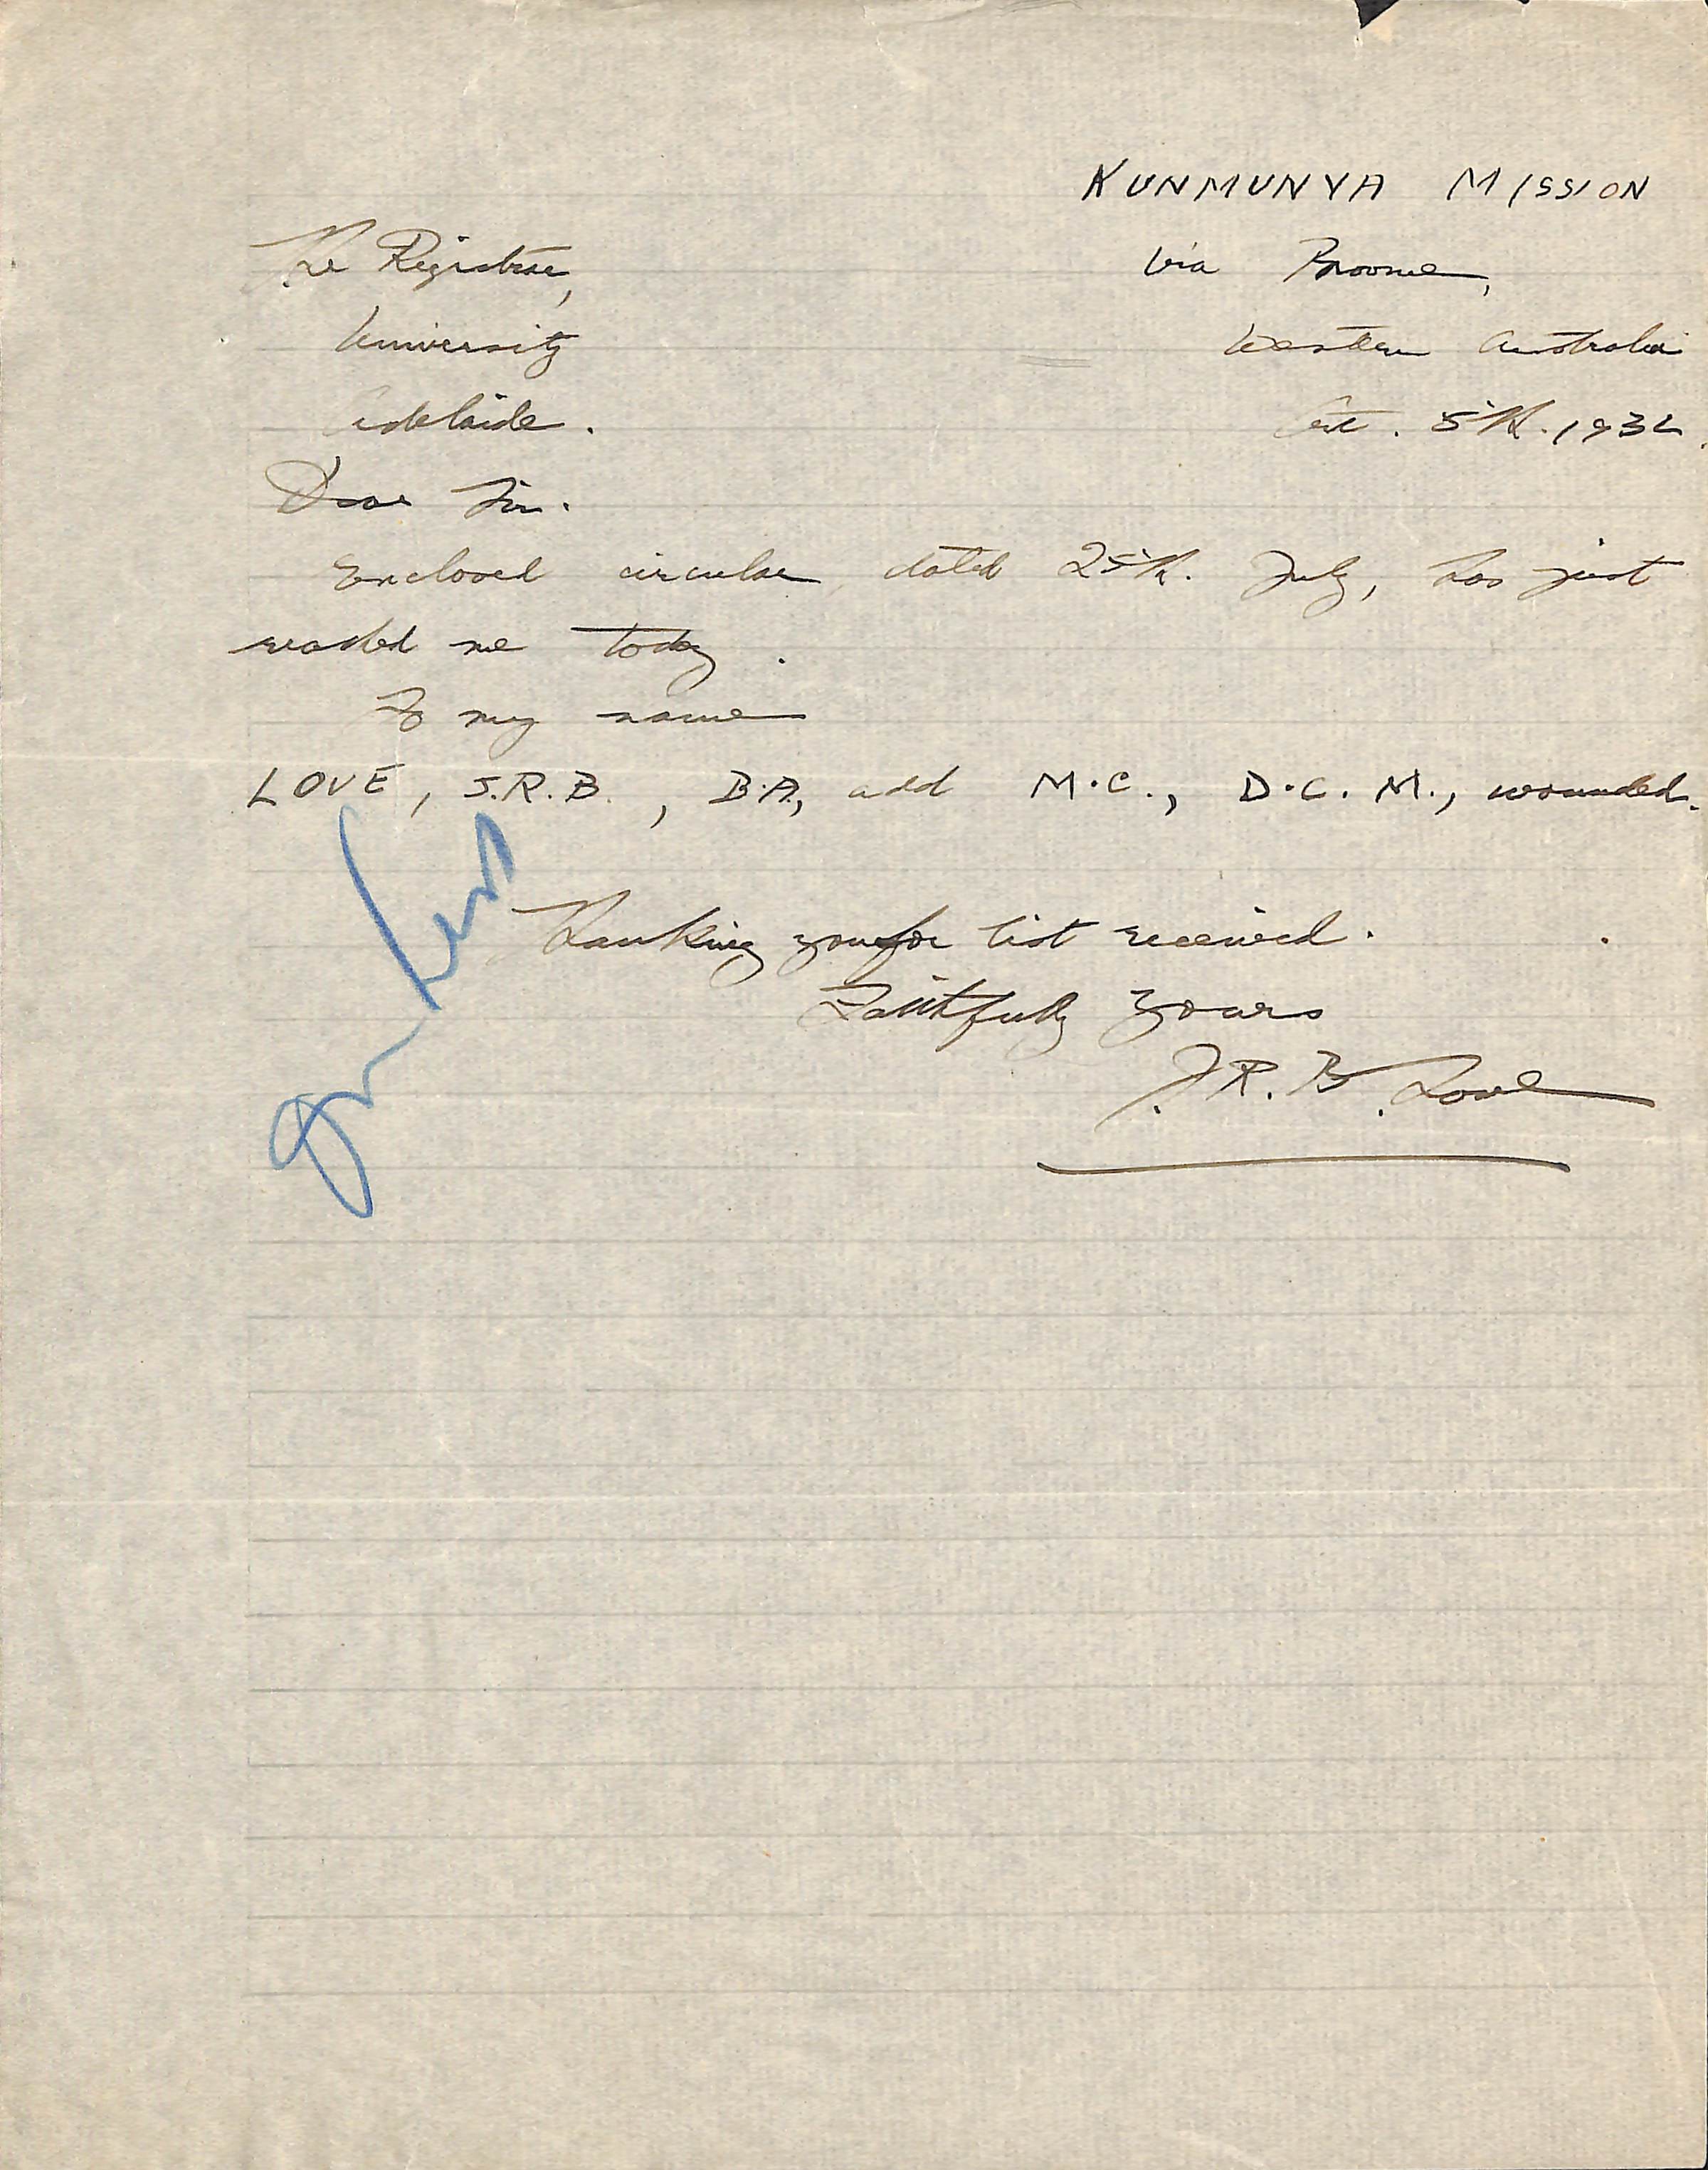 KUNMUNYA MISSION
via Broome,
Western Australia
Oct. 5th. 1932
The Registrar,
University
Adelaide.
Dear Sir.
Enclosed circular, dated 25th. July, has just
reached me today.
To my name
LOVE, J.R.B., B.A., add M.C., D.C.M., wounded.
Thanking you for list received.
Faithfully yours
J.R.B. Love